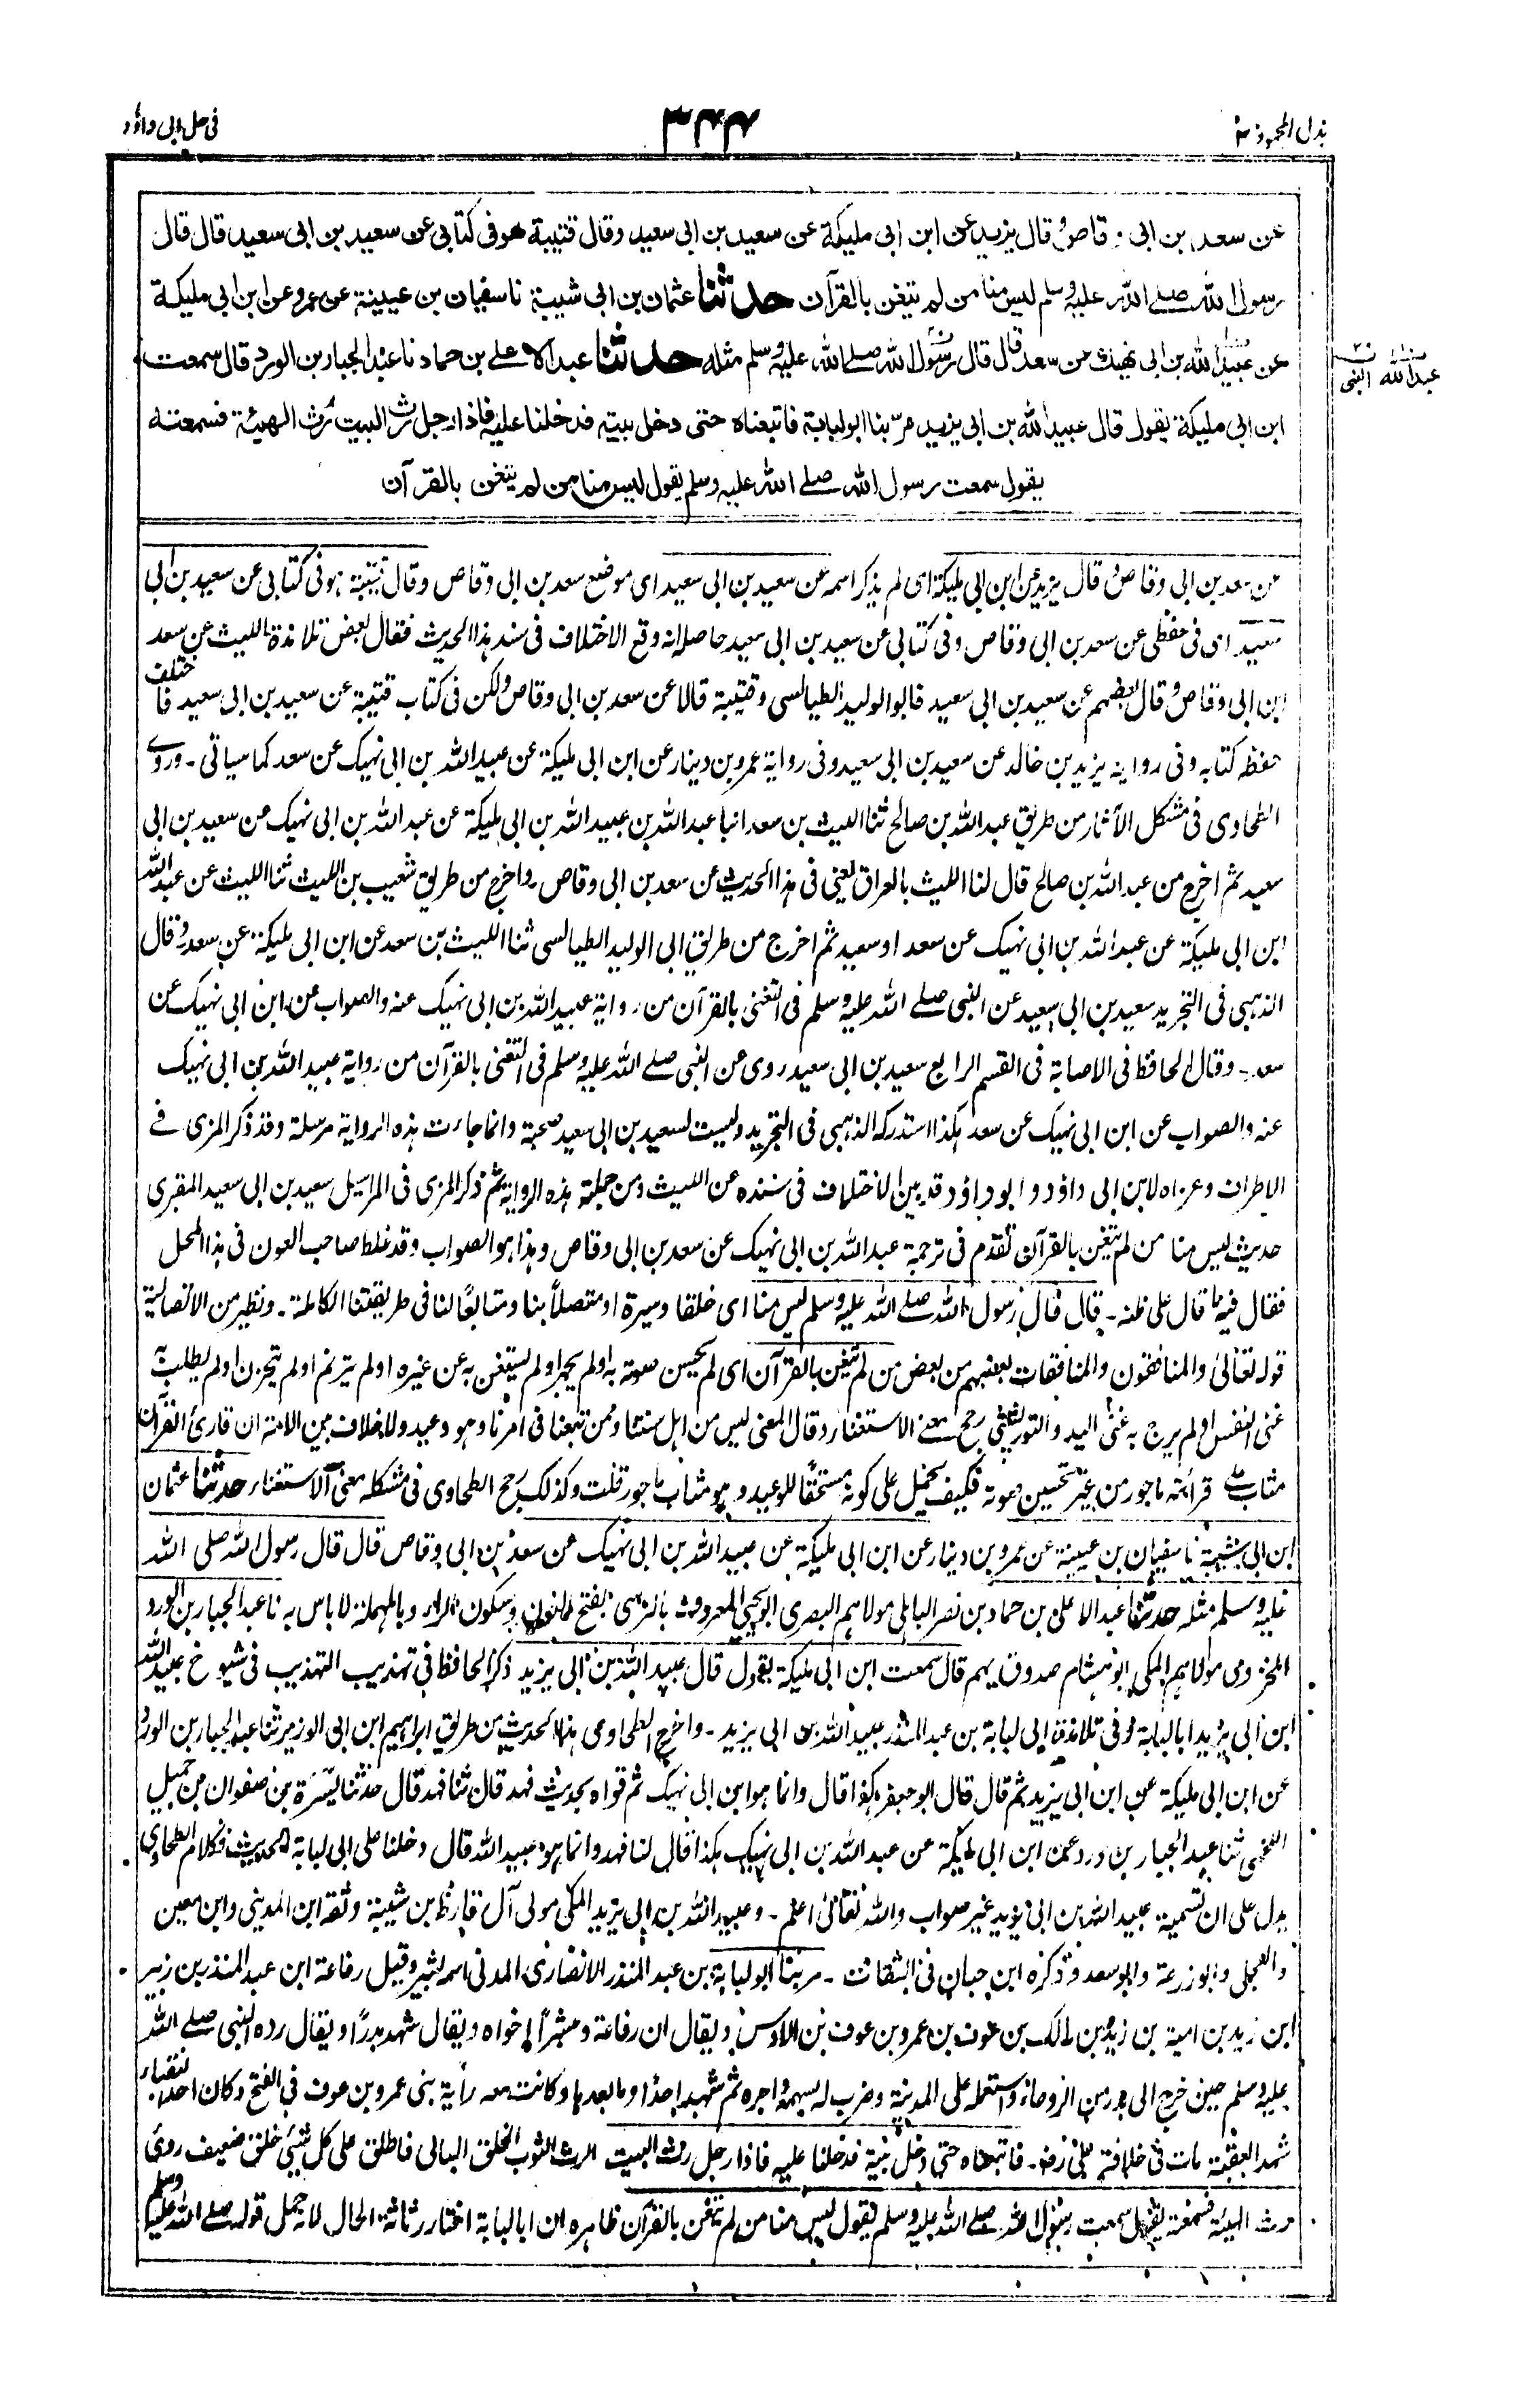 بذل المجهود ٢
٣٤٤
فى حل ابى داؤد
عن سعد بن ابى وقاص وقال يزيد عن ابن ابى مليكة عن سعيد بن ابى سعيد وقال قتيبة هو فى كتابى عن سعيد بن ابى سعيد قال قال
رسول الله صلے الله عليه وسلم ليس منا من لم يتغن بالقرآن حدثنا عثمان بن ابى شيبة نا سفيان بن عيينة عن عمرو عن ابن ابى مليكة
عن عبيد الله بن ابى نهيك عن سعد قال قال رسول الله صلے الله عليه وسلم مثله حدثنا عبد الاعلے بن حماد نا عبد الجبار بن الورد قال سمعت
عبد الله النبى
ابن ابى مليكة يقول قال عبيد الله بن ابى يزيد مرّ بنا ابو لبابة فاتبعناه حتى دخل بيته فدخلنا عليه فاذا رجل رث البيت رث الهيئة فسمعته
يقول سمعت رسول الله صلے الله عليه وسلم يقول ليس منا من لم يتغن بالقرآن
عن سعد بن ابى وقاص وقال يزيد عن ابن ابى مليكة اى لم يذكر اسمه عن سعيد بن ابى سعيد اى موضع سعد بن ابى وقاص وقال قتيبة هو فى كتابى عن سعيد بن ابى
سعيد اى فى حفظى عن سعد بن ابى وقاص وفى كتابى عن سعيد بن ابى سعيد حاصله انه وقع الاختلاف فى سند هذا الحديث فقال بعض تلامذة الليث عن سعد
ابن ابى وقاص وقال بعضهم عن سعيد بن ابى سعيد فابو الوليد الطيالسى وقتيبة قالا عن سعد بن ابى وقاص ولكن فى كتاب قتيبة عن سعيد بن ابى سعيد فاختلف
حفظه كتابه وفى رواية يزيد بن خالد عن سعيد بن ابى سعيد وفى رواية عمرو بن دينار عن ابن ابى مليكة عن عبيد الله بن ابى نهيك عن سعد كما سياتى ۔ وروے
الطحاوى فى مشكل الآثار من طريق عبد الله بن صالح ثنا الليث بن سعد انبا عبد الله بن عبيد الله بن ابى مليكة عن عبد الله بن ابى نهيك عن سعيد بن ابى
سعيد ثم اخرج من عبد الله بن صالح قال لنا الليث بالعراق يعنى فى هذا الحديث عن سعد بن ابى وقاص واخرج من طريق شعيب بن الليث ثنا الليث عن عبد الله
ابن ابى مليكة عن عبد الله بن ابى نهيك عن سعد او سعيد ثم اخرج من طريق ابى الوليد الطيالسى ثنا الليث بن سعد عن ابن ابى مليكة عن سعد وقال
الذهبى فى التجريد سعيد بن ابى سعيد عن النبى صلے الله عليه وسلم فى التغنى بالقرآن من رواية عبيد الله بن ابى نهيك عنه والصواب عن ابن ابى نهيك عن
سعد ۔ وقال الحافظ فى الاصابة فى القسم الرابع سعيد بن ابى سعيد روى عن النبى صلے الله عليه وسلم فى التغنى بالقرآن من رواية عبيد الله بن ابى نهيك
عنه والصواب عن ابن ابى نهيك عن سعد هكذا استدركه الذهبى فى التجريد وليست لسعيد بن ابى سعيد صحبة وانما جاءت هذه الرواية مرسلة وقد ذكر المزى فے
الاطراف وعزاه لابن ابى داؤد وابو داؤد قد بين الاختلاف فى سنده عن الليث ومن جملة هذه الرواية ثم ذكر المزى فى المراسيل سعيد بن ابى سعيد المقبرى
حديث ليس منا من لم يتغن بالقرآن تقدم فى ترجمة عبد الله بن ابى نهيك عن سعد بن ابى وقاص وهذا هو الصواب وقد غلط صاحب العون فى هذا المحل
فقال فيه ما قال على ظنه ۔ قال قال رسول الله صلے الله عليه وسلم ليس منا اى خلقا وسيرة او متصلاً بنا ومتابعًا لنا فى طريقتنا الكاملة ۔ ونظير من الاتصالية
قوله تعالى والمنافقون والمنافقات بعضهم من بعض من لم يتغن بالقرآن اى لم يحسن صوته به او لم يجهر او لم يستغن به عن غيره او لم يترنم او لم يتحزن او لم يطلب به
غنى النفس او لم يرج به غنى اليد والتوربشتى رجح معنے الاستغناء وقال المعنى ليس من اهل سنتنا وممن تبعنا فى امرنا وهو وعيد ولا خلاف بين الامة ان قارئ القرآن
مثاب على قراءته ماجور من غير تحسين صوته فكيف يحمل على كونه مستحقًا للوعيد وهو مثاب ماجور قلت وكذلك رجح الطحاوى فى مشكله معنى الاستغناء حدثنا عثمان
ابن ابى شيبة نا سفيان بن عيينة عن عمرو بن دينار عن ابن ابى مليكة عن عبيد الله بن ابى نهيك عن سعد بن ابى وقاص قال قال رسول الله صلى الله
عليه وسلم مثله حدثنا عبد الاعلى بن حماد بن نصر الباهلى مولاهم البصرى ابو يحيى المعروف بالنرسى بفتح النون وسكون الراء وبالمهملة لا باس به نا عبد الجبار بن الورد
المخزومى مولاهم المكى ابو هشام صدوق يهم قال سمعت ابن ابى مليكة يقول قال عبيد الله بن ابى يزيد ذكر الحافظ فى تهذيب التهذيب فى شيوخ عبيد الله
ابن ابى يزيد ابا لبابة وفى تلامذة ابى لبابة بن عبد المنذر عبيد الله بن ابى يزيد ۔ واخرج الطحاوى هذا الحديث من طريق ابراهيم ابن ابى الوزير ثنا عبد الجبار بن الورد
عن ابن ابى مليكة عن ابن ابى يزيد ثم قال قال ابو جعفر هكذا قال وانما هو ابن ابى نهيك ثم قواه بحديث فهد قال ثنا فهد قال حدثنا يسرة بن صفوان بن جميل
اللخمى ثنا عبد الجبار بن ورد عن ابن ابى مليكة عن عبد الله بن ابى نهيك هكذا قال لنا فهد وانما هو عبيد الله قال دخلنا على ابى لبابة الحديث فكلام الطحاوى
يدل على ان تسمية عبيد الله بن ابى يزيد غير صواب والله تعالىٰ اعلم ۔ وعبيد الله بن ابى يزيد المكى مولى آل قارظ بن شيبة وثقه ابن المدينى وابن معين
والعجلى وابو زرعة وابو سعد وذكره ابن حبان فى الثقات ۔ مر بنا ابو لبابة بن عبد المنذر الانصارى المدنى اسمه بشير وقيل رفاعة ابن عبد المنذر بن زبير
ابن زيد بن امية بن زيد بن مالك بن عوف بن عمرو بن عوف بن الاوس ويقال ان رفاعة ومبشرًا اخواه ويقال شهد بدرًا ويقال رده النبى صلے الله
عليه وسلم حين خرج الى بدر من الروحاء واستعمله على المدينة وضرب له بسهمه واجره ثم شهد احدًا وما بعدها وكانت معه راية بنى عمرو بن عوف فى الفتح وكان احد النقباء
شهد العقبة مات فى خلافة على رضہ ۔ فاتبعناه حتى دخل بيته فدخلنا عليه فاذا رجل رث البيت الرث الثوب الخلق البالى فاطلق على كل شيئ خلق ضعيف روى
رث الهيئة فسمعته يقول سمعت رسول الله صلے الله عليه وسلم يقول ليس منا من لم يتغن بالقرآن ظاهره ان ابا لبابة اختار رثاثة الحال لانه حمل قوله صلے الله عليه وسلم